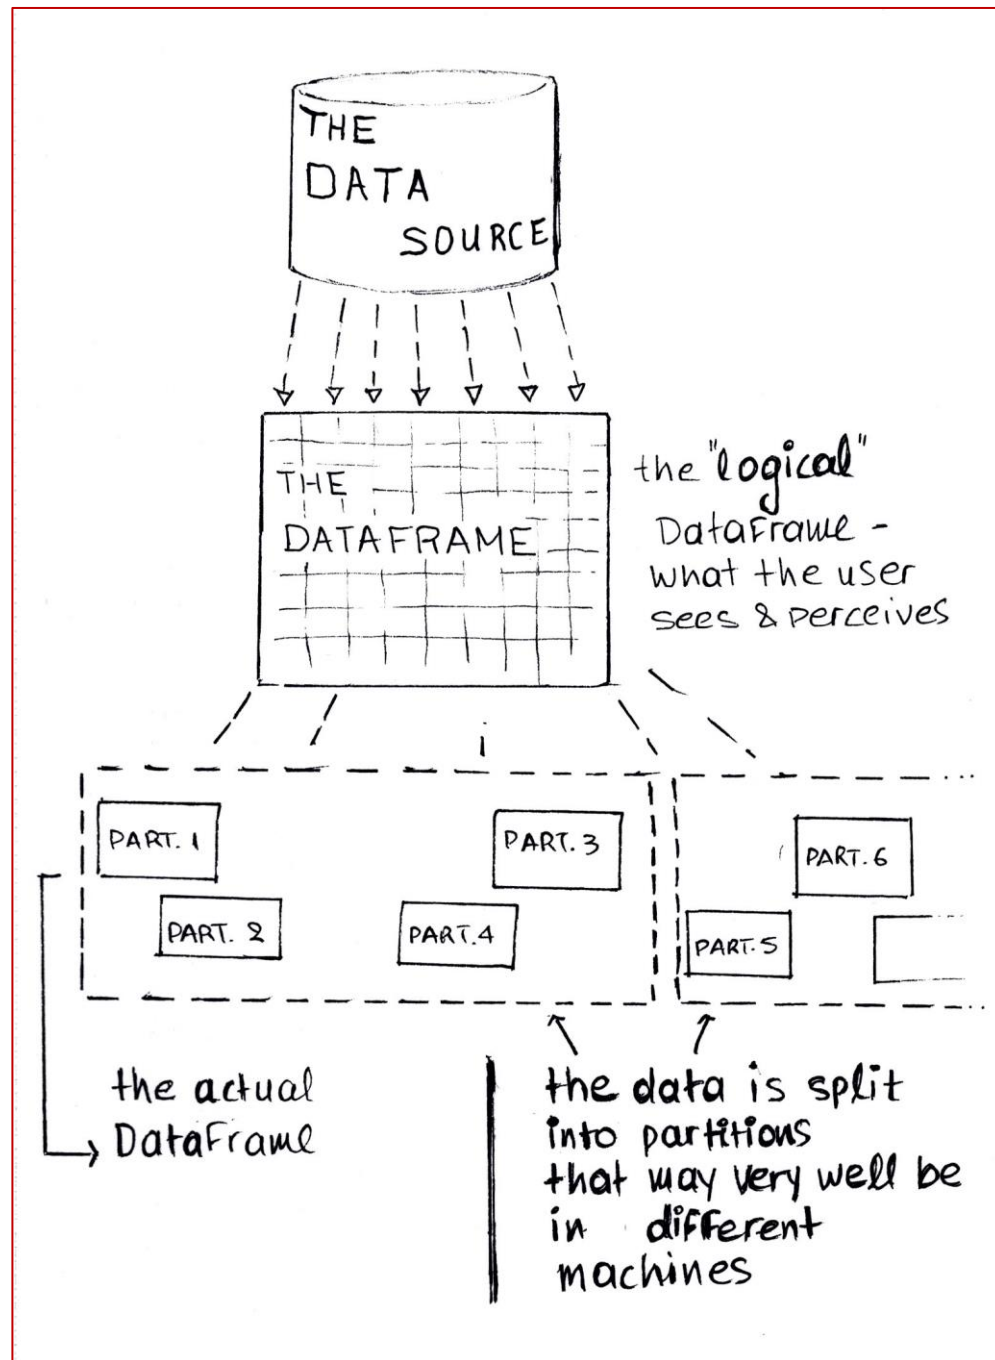 THE
DATA
SOURCE
THE
DATAFRAME
the "logical"
DataFrame -
what the user
sees & perceives
PART. 1
PART. 3
PART. 6
PART. 2
PART. 4
PART. 5
the actual
DataFrame
the data is split
into partitions
that may very well be
in different
machines